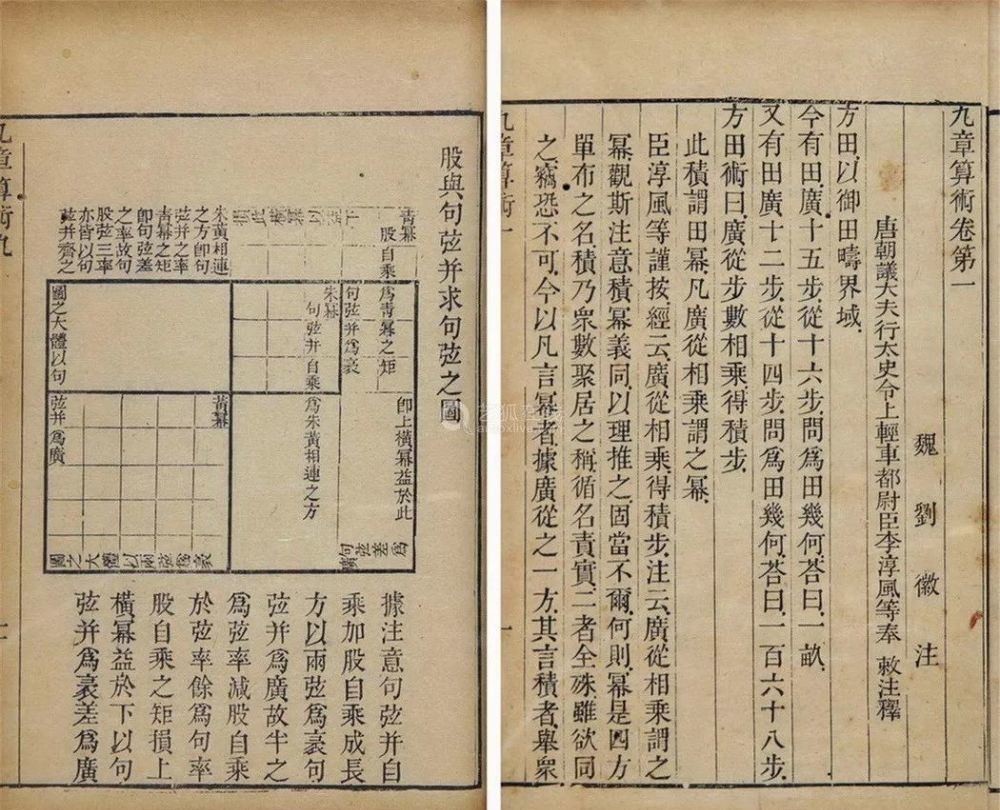 九章算術卷第一
魏劉徽注
唐朝議大夫行太史令上輕車都尉臣李淳風等奉 敕注釋
方田以御田疇界域.
今有田.廣十五步.從十六步.問爲田幾何.荅曰.一畝.
又有田廣十二步.從十四步.問爲田幾何.荅曰.一百六十八步.
方田術曰.廣從步數相乘.得積步.
此積謂田冪.凡廣從相乘謂之冪.
臣淳風等謹按經云.廣從相乘.得積步.注云.廣從相乘謂之
冪觀斯注意.積冪義同.以理推之.固當不爾.何則.冪是四方
單布之名.積乃衆數聚居之稱.循名責實.二者全殊.雖欲同
之.竊恐不可.今以凡言冪者.據廣從之一方.其言積者.舉衆
九章算術一
一
股與句弦并求句弦之圖
青冪
股自乘爲青冪之矩
卽上橫冪益於此
句弦差爲廣
句弦并爲袤
朱冪
句弦并自乘爲朱黃相連之方
黃冪
朱黃相連
之方卽句
弦并之率
青冪之矩
卽句弦差
之率故句
股弦三率
亦皆以句
弦并齊之
圖之大體以句
弦并爲廣
圖之大體以兩弦爲袤
據注意句弦并自
乘加股自乘成長
方以兩弦爲袤句
弦并爲廣故半之
爲弦率減股自乘
於弦率餘爲句率
股自乘之矩損上
橫冪益於下以句
弦并爲袤差爲廣
九章算術九